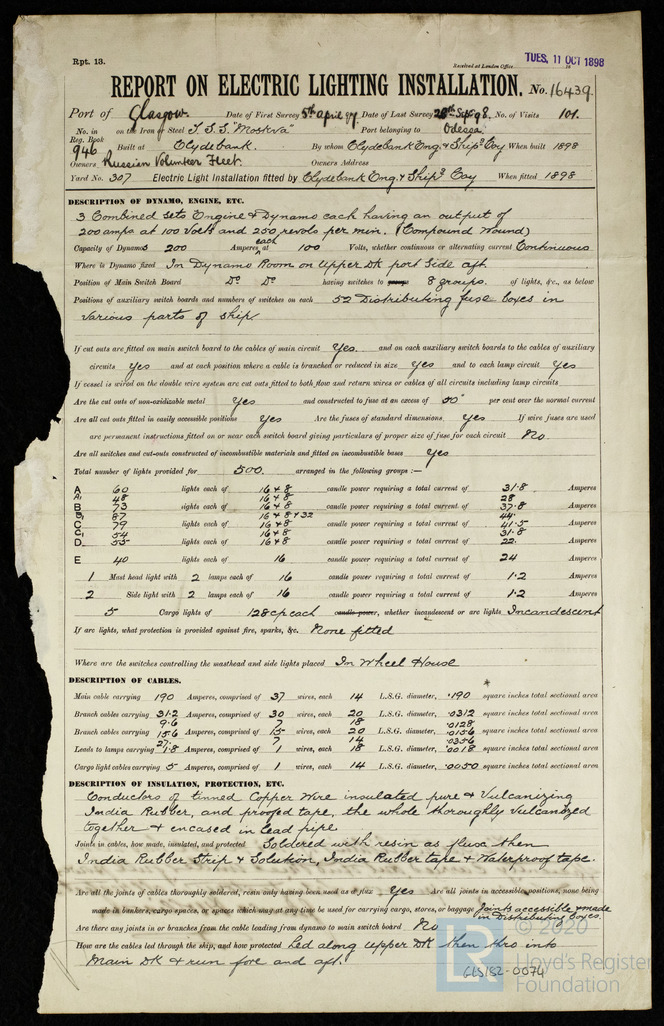 Rpt. 13.
Received at London Office
TUES. 11 OCT 1898
REPORT ON ELECTRIC LIGHTING INSTALLATION. No. 16439
Port of Glasgow Date of First Survey 5th April 97 Date of Last Survey 28th Sep 98 No. of Visits 101
No. in Reg. Book 946 on the Iron or Steel T.S.S. "Moskva" Port belonging to Odessa
Built at Clydebank. By whom Clydebank Eng. & Ship? Coy When built 1898
Owners Russian Volunteer Fleet. Owners Address
Yard No. 307 Electric Light Installation fitted by Clydebank Eng. & Ship? Coy When fitted 1898
DESCRIPTION OF DYNAMO, ENGINE, ETC.
3 Combined sets Engine & Dynamo each having an output of
200 amps at 100 Volts and 250 revols per min. (Compound Wound)
Capacity of Dynamos 200 Amperes each at 100 Volts, whether continuous or alternating current Continuous
Where is Dynamo fixed In Dynamo Room on Upper Dk port Side aft
Position of Main Switch Board Do Do having switches to groups 8 groups. of lights, &c., as below
Positions of auxiliary switch boards and numbers of switches on each 52 Distributing fuse boxes in
various parts of ship.
If cut outs are fitted on main switch board to the cables of main circuit Yes. and on each auxiliary switch boards to the cables of auxiliary
circuits Yes and at each position where a cable is branched or reduced in size Yes and to each lamp circuit Yes
If vessel is wired on the double wire system are cut outs fitted to both flow and return wires or cables of all circuits including lamp circuits
Are the cut outs of non-oxidizable metal Yes and constructed to fuse at an excess of 50 per cent over the normal current
Are all cut outs fitted in easily accessible positions Yes Are the fuses of standard dimensions Yes If wire fuses are used
are permanent instructions fitted on or near each switch board giving particulars of proper size of fuse for each circuit No.
Are all switches and cut-outs constructed of incombustible materials and fitted on incombustible bases Yes
Total number of lights provided for 500. arranged in the following groups :—
A 60 lights each of 16 & 8 candle power requiring a total current of 31.8 Amperes
A1 48 16 & 8 28
B 73 lights each of 16 & 8 candle power requiring a total current of 37.8 Amperes
B1 87 16 & 8 & 32 44.
C 79 lights each of 16 & 8 candle power requiring a total current of 41.5 Amperes
C1 54 16 & 8 31.8
D 55 lights each of 16 & 8 candle power requiring a total current of 22. Amperes
E 40 lights each of 16 candle power requiring a total current of 24 Amperes
1 Mast head light with 2 lamps each of 16 candle power requiring a total current of 1.2 Amperes
2 Side light with 2 lamps each of 16 candle power requiring a total current of 1.2 Amperes
5 Cargo lights of 128 cp each candle power, whether incandescent or arc lights Incandescent
If arc lights, what protection is provided against fire, sparks, &c. None fitted
Where are the switches controlling the masthead and side lights placed In Wheel House
DESCRIPTION OF CABLES.
Main cable carrying 190 Amperes, comprised of 37 wires, each 14 L.S.G. diameter, .190 square inches total sectional area
Branch cables carrying 31.2 Amperes, comprised of 30 wires, each 20 L.S.G. diameter, .0312 square inches total sectional area
9.6 7 18 .0128
Branch cables carrying 15.6 Amperes, comprised of 15 wires, each 20 L.S.G. diameter, .0156 square inches total sectional area
27. 7 14 .0356
Leads to lamps carrying 1.8 Amperes, comprised of 1 wires, each 18 L.S.G. diameter, .0018 square inches total sectional area
Cargo light cables carrying 5 Amperes, comprised of 1 wires, each 14 L.S.G. diameter, .0050 square inches total sectional area
DESCRIPTION OF INSULATION, PROTECTION, ETC.
Conductors of tinned Copper Wire insulated pure & Vulcanizing
India Rubber, and proofed tape, the whole thoroughly Vulcanized
together & encased in lead pipe
Joints in cables, how made, insulated, and protected Soldered with resin as flux then
India Rubber Strip & Solution, India Rubber tape & Waterproof tape.
Are all the joints of cables thoroughly soldered, resin only having been used as a flux Yes Are all joints in accessible positions, none being
made in bunkers, cargo spaces, or spaces which may at any time be used for carrying cargo, stores, or baggage Joints accessible & made
in Distributing boxes.
Are there any joints in or branches from the cable leading from dynamo to main switch board No
How are the cables led through the ship, and how protected Led along Upper Dk then thro into
Main Dk & run fore and aft.
© 2020
LR
Lloyd's Register
Foundation
GLS152-0074